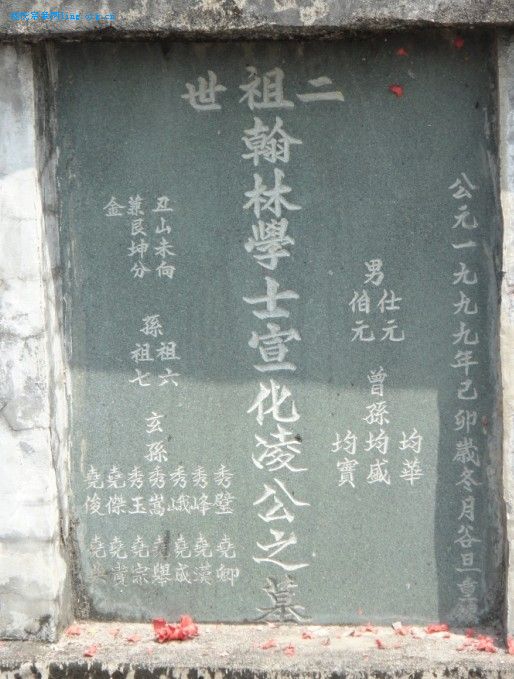 二祖世
公元一九九九年己卯歲冬月谷旦重
仕元
男
伯元
均華
曾孫均盛
均寶
翰林學士宣化凌公之墓
丑山未向
兼艮坤分
金
祖六
孫
祖七
玄孫
秀璧 堯卿
秀峰 堯漢
秀峨 堯成
秀嵩 堯舉
秀玉 堯宗
堯傑 堯賓
堯俊 堯